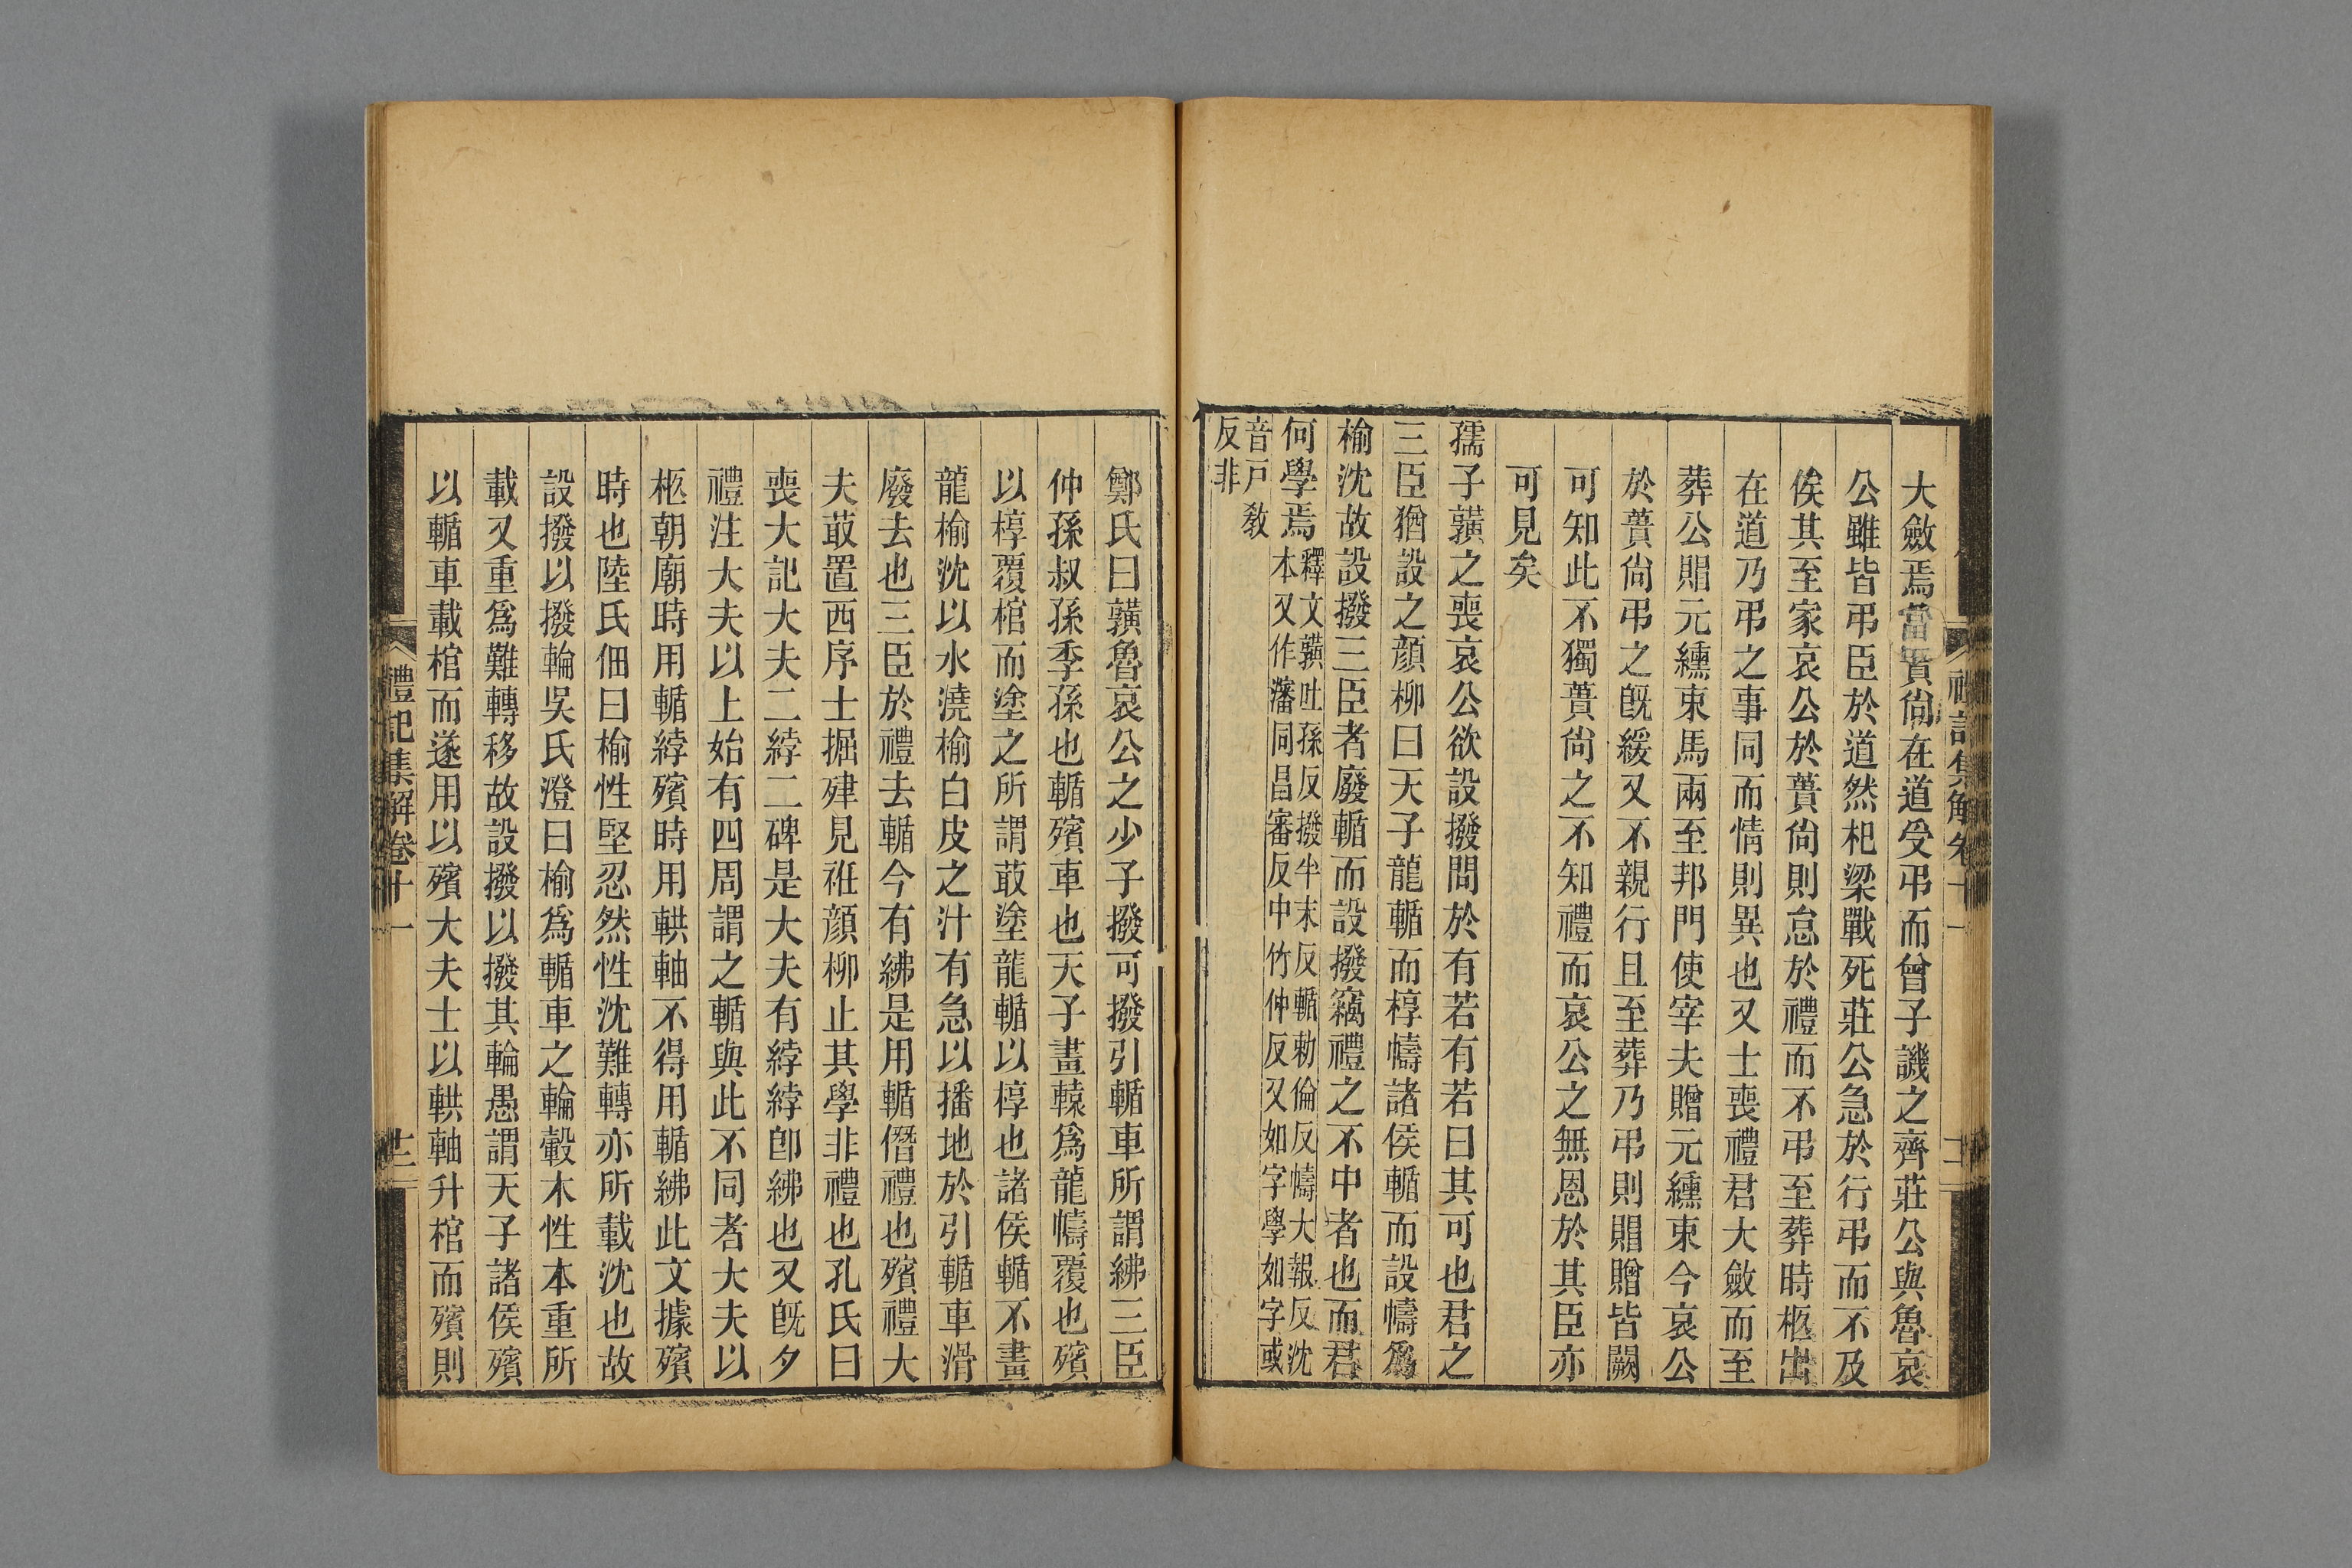 大斂焉當蕢尙在道受弔而曾子譏之齊莊公與魯哀
公雖皆弔臣於道然杞梁戰死莊公急於行弔而不及
俟其至家哀公於蕢尙則怠於禮而不弔至葬時柩出
在道乃弔之事同而情則異也又士喪禮君大斂而至
葬公賵元纁束馬兩至邦門使宰夫贈元纁束今哀公
於蕢尙弔之旣緩又不親行且至葬乃弔則賵贈皆闕
可知此不獨蕢尙之不知禮而哀公之無恩於其臣亦
可見矣
孺子䵍之喪哀公欲設撥問於有若有若曰其可也君之
三臣猶設之顏柳曰天子龍輴而椁幬諸侯輴而設幬爲
榆沈故設撥三臣者廢輴而設撥竊禮之不中者也而君
何學焉
釋文䵍吐孫反撥半末反輴勅倫反幬大報反沈
本又作瀋同昌審反中竹仲反又如字學如字或
音戸敎
反非
鄭氏曰䵍魯哀公之少子撥可撥引輴車所謂紼三臣
仲孫叔孫季孫也輴殯車也天子畫轅爲龍幬覆也殯
以椁覆棺而塗之所謂菆塗龍輴以椁也諸侯輴不畫
龍榆沈以水澆榆白皮之汁有急以播地於引輴車滑
廢去也三臣於禮去輴今有紼是用輴僭禮也殯禮大
夫菆置西序士掘肂見衽顏柳止其學非禮也孔氏曰
喪大記大夫二綍二碑是大夫有綍綍卽紼也又旣夕
禮注大夫以上始有四周謂之輴與此不同者大夫以
柩朝廟時用輴綍殯時用輁軸不得用輴紼此文據殯
時也陸氏佃曰榆性堅忍然性沈難轉亦所載沈也故
設撥以撥輪吳氏澄曰榆爲輴車之輪轂木性本重所
載又重爲難轉移故設撥以撥其輪愚謂天子諸侯殯
以輴車載棺而遂用以殯大夫士以輁軸升棺而殯則
禮記集解卷十一